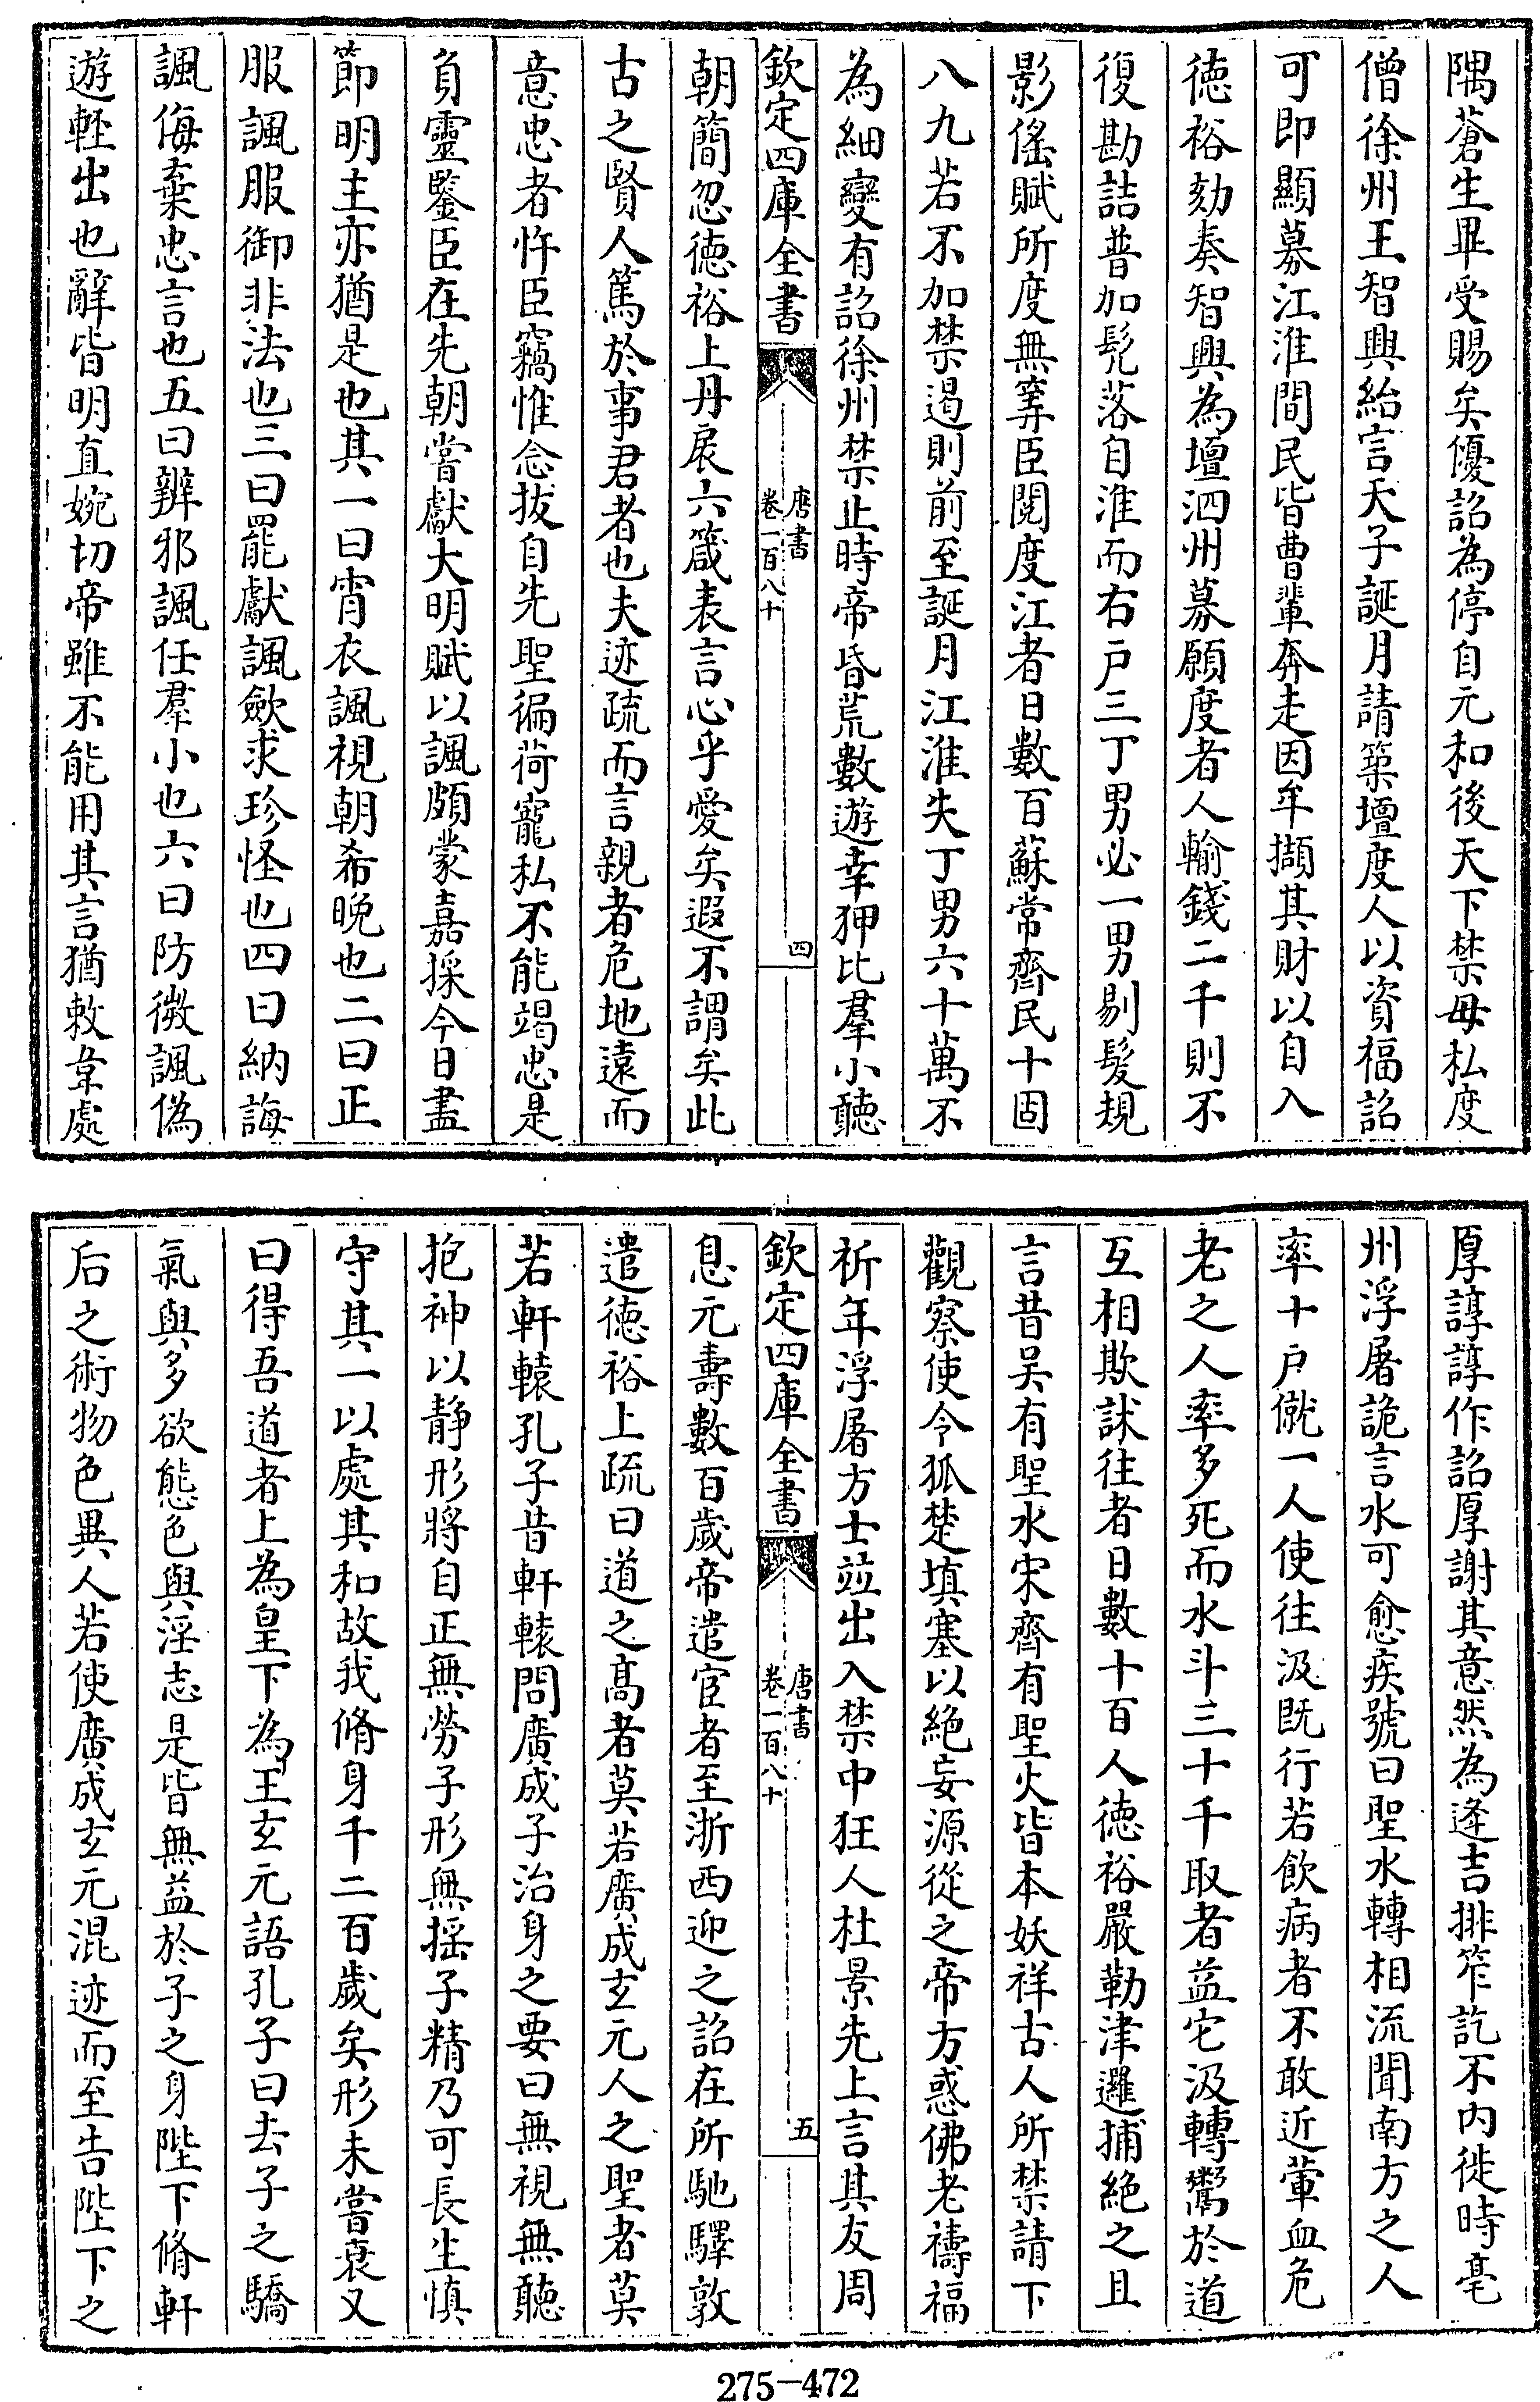 隅蒼生畢受賜矣優詔為停自元和後天下禁毋私度
僧徐州王智興紿言天子誕月請築壇度人以資福詔
可即顯募江淮間民皆曹輩奔走因牟擷其財以自入
徳裕劾奏智興為壇泗州募願度者人輸錢二千則不
復勘詰普加髠落自淮而右户三丁男必一男剔髮規
影傜賦所度無筭臣閲度江者日數百蘇常齊民十固
八九若不加禁遏則前至誕月江淮失丁男六十萬不
為細變有詔徐州禁止時帝昏荒數遊幸狎比羣小聽
欽定四庫全書
唐書
卷一百八十
四
朝簡忽徳裕上丹扆六箴表言心乎愛矣遐不謂矣此
古之賢人篤於事君者也夫迹疏而言親者危地遠而
意忠者忤臣竊惟念拔自先聖徧荷寵私不能竭忠是
負靈鑒臣在先朝嘗獻大明賦以諷頗蒙嘉採今日盡
節明主亦猶是也其一曰宵衣諷視朝希晚也二曰正
服諷服御非法也三曰罷獻諷歛求珍怪也四曰納誨
諷侮棄忠言也五曰辨邪諷任羣小也六曰防微諷偽
遊輕出也辭皆明直婉切帝雖不能用其言猶敕韋處
厚諄諄作詔厚謝其意然為逄吉排笮訖不内徙時亳
州浮屠詭言水可愈疾號曰聖水轉相流聞南方之人
率十户僦一人使往汲既行若飲病者不敢近葷血危
老之人率多死而水斗三十千取者益它汲轉鬻於道
互相欺訹往者日數十百人徳裕嚴勒津邏捕絶之且
言昔吴有聖水宋齊有聖火皆本妖祥古人所禁請下
觀察使令狐楚填塞以絶妄源從之帝方惑佛老禱福
祈年浮屠方士竝出入禁中狂人杜景先上言其友周
欽定四庫全書
唐書
卷一百八十
五
息元壽數百歲帝遣宦者至浙西迎之詔在所馳驛敦
遣徳裕上疏曰道之髙者莫若廣成玄元人之聖者莫
若軒轅孔子昔軒轅問廣成子治身之要曰無視無聽
抱神以静形將自正無勞子形無揺子精乃可長生慎
守其一以處其和故我脩身千二百歲矣形未嘗衰又
曰得吾道者上為皇下為王玄元語孔子曰去子之驕
氣與多欲態色與淫志是皆無益於子之身陛下脩軒
后之術物色異人若使廣成玄元混迹而至告陛下之
275-472